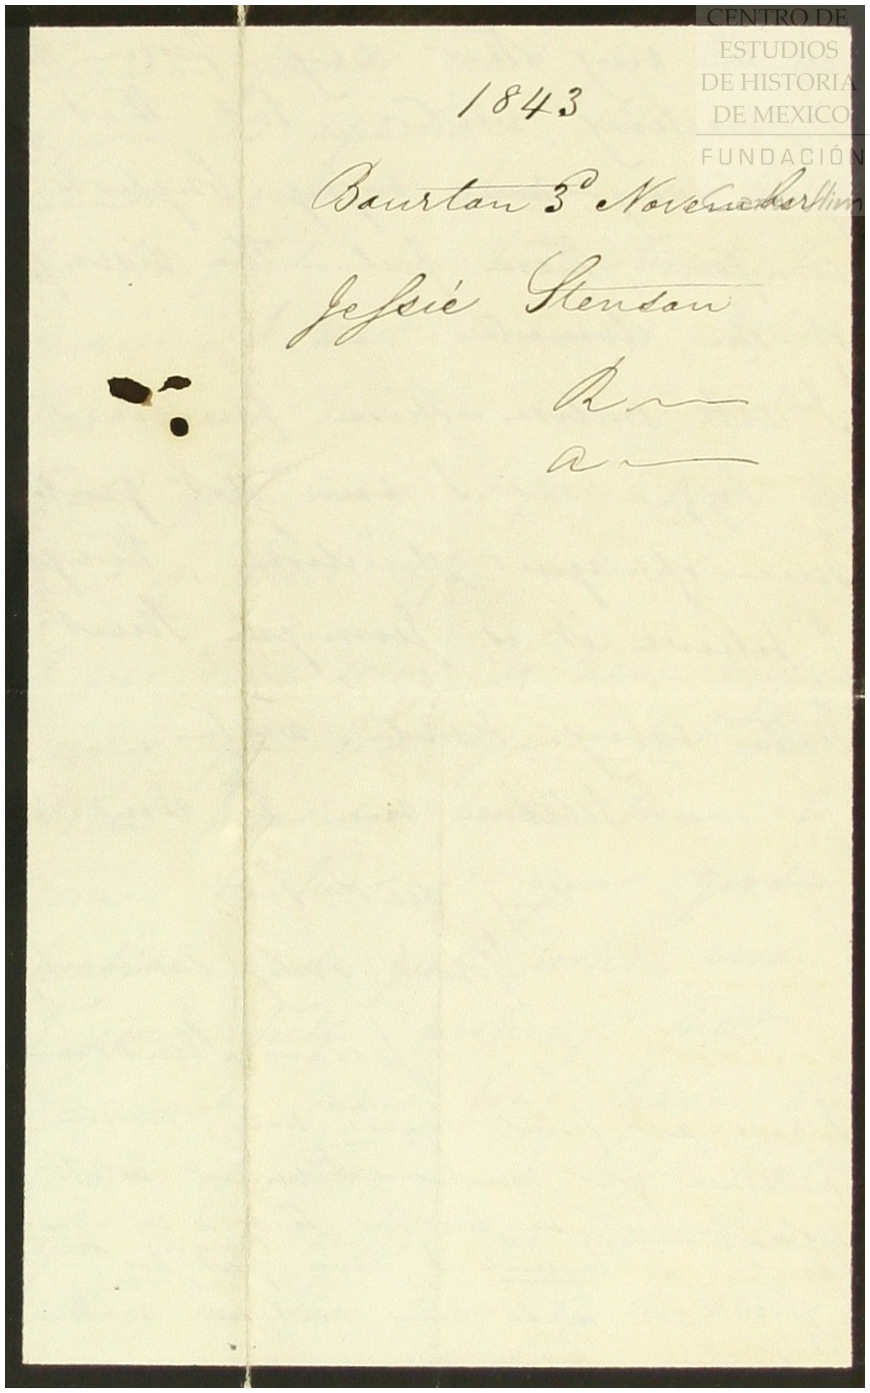 CENTRO DE
ESTUDIOS
DE HISTORIA
DE MEXICO
FUNDACIÓN
1843
Bourton 3d November
Jefsie Stenson
R —
A —